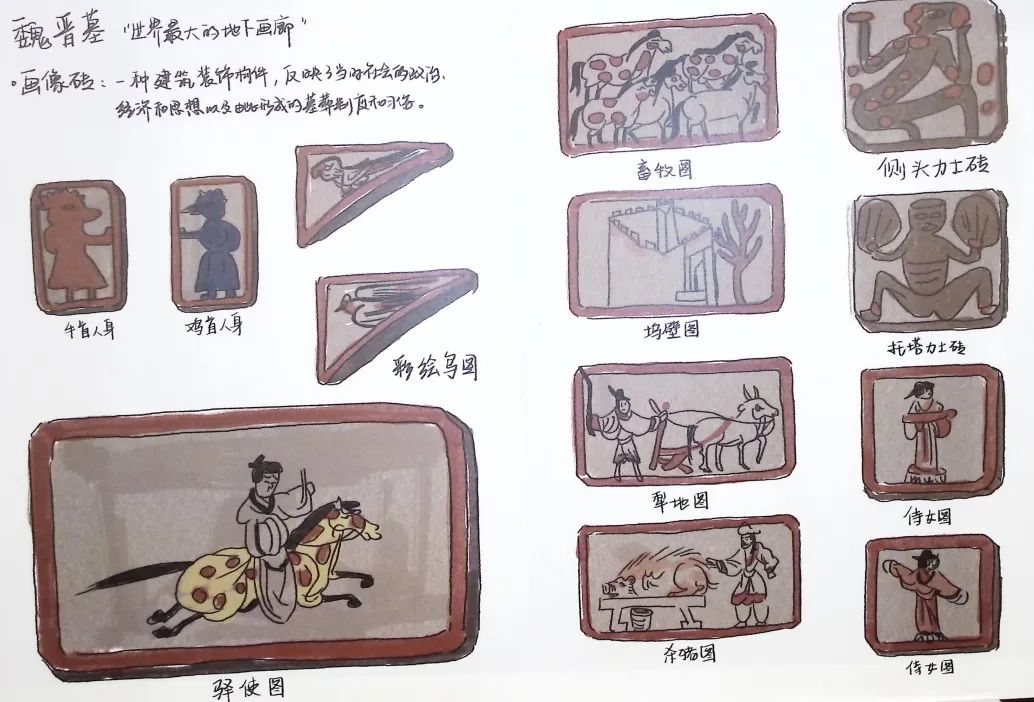 魏晋墓 "世界最大的地下画廊"
·画像砖：一种建筑装饰构件，反映了当时社会的政治、
经济和思想以及由此形成的墓葬制度和习俗。
牛首人身
鸡首人身
彩绘鸟图
驿使图
畜牧图
坞壁图
犁地图
杀猪图
侧头力士砖
托塔力士砖
侍女图
侍女图